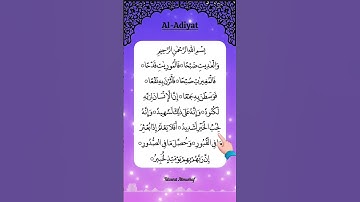 Al-Adiyat
بِسْمِ اللّٰهِ الرَّحْمٰنِ الرَّحِيْمِ
وَالْعٰدِيٰتِ ضَبْحًا ۝ فَالْمُوْرِيٰتِ قَدْحًا ۝
فَالْمُغِيْرٰتِ صُبْحًا ۝ فَاَثَرْنَ بِهٖ نَقْعًا ۝
فَوَسَطْنَ بِهٖ جَمْعًا ۝ اِنَّ الْاِنْسَانَ لِرَبِّهٖ
لَكَنُوْدٌ ۝ وَاِنَّهٗ عَلٰى ذٰلِكَ لَشَهِيْدٌ ۝ وَاِنَّهٗ
لِحُبِّ الْخَيْرِ لَشَدِيْدٌ ۝ اَفَلَا يَعْلَمُ اِذَا بُعْثِرَ
مَا فِى الْقُبُوْرِ ۝ وَحُصِّلَ مَا فِى الصُّدُوْرِ ۝
اِنَّ رَبَّهُمْ بِهِمْ يَوْمَئِذٍ لَّخَبِيْرٌ ۝